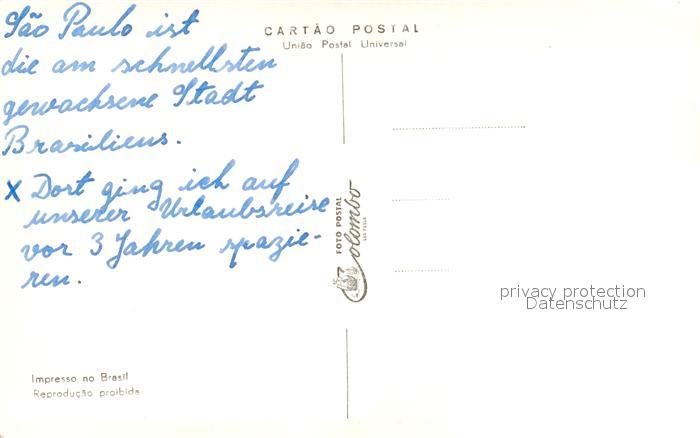 São Paulo ist
die am schnellsten
gewachsene Stadt
Brasiliens.
x Dort ging ich auf
unserer Urlaubsreise
vor 3 Jahren spazie-
ren.
CARTÃO POSTAL
União Postal Universal
FOTO POSTAL
Colombo
SÃO PAULO
privacy protection
Datenschutz
Impresso no Brasil
Reprodução proibida